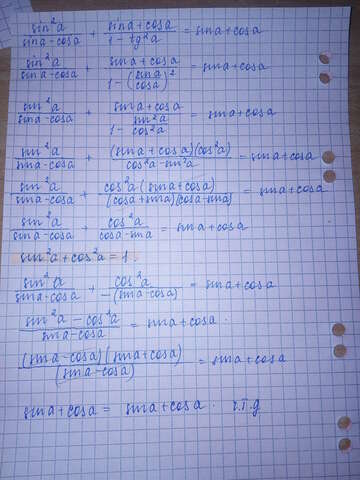 sin²a / (sina - cosa) + (sina + cosa) / (1 - tg²a) = sina + cosa
sin²a / (sina - cosa) + (sina + cosa) / (1 - (sina / cosa)²) = sina + cosa
sin²a / (sina - cosa) + (sina + cosa) / (1 - sin²a / cos²a) = sina + cosa
sin²a / (sina - cosa) + (sina + cosa)(cos²a) / (cos²a - sin²a) = sina + cosa
sin²a / (sina - cosa) + cos²a (sina + cosa) / (cosa + sina)(cosa - sina) = sina + cosa
sin²a / (sina - cosa) + cos²a / (cosa - sina) = sina + cosa
sin²a + cos²a = 1.
sin²a / (sina - cosa) + cos²a / -(sina - cosa) = sina + cosa
(sin²a - cos²a) / (sina - cosa) = sina + cosa.
(sina - cosa)(sina + cosa) / (sina - cosa) = sina + cosa
sina + cosa = sina + cosa. ч.т.д